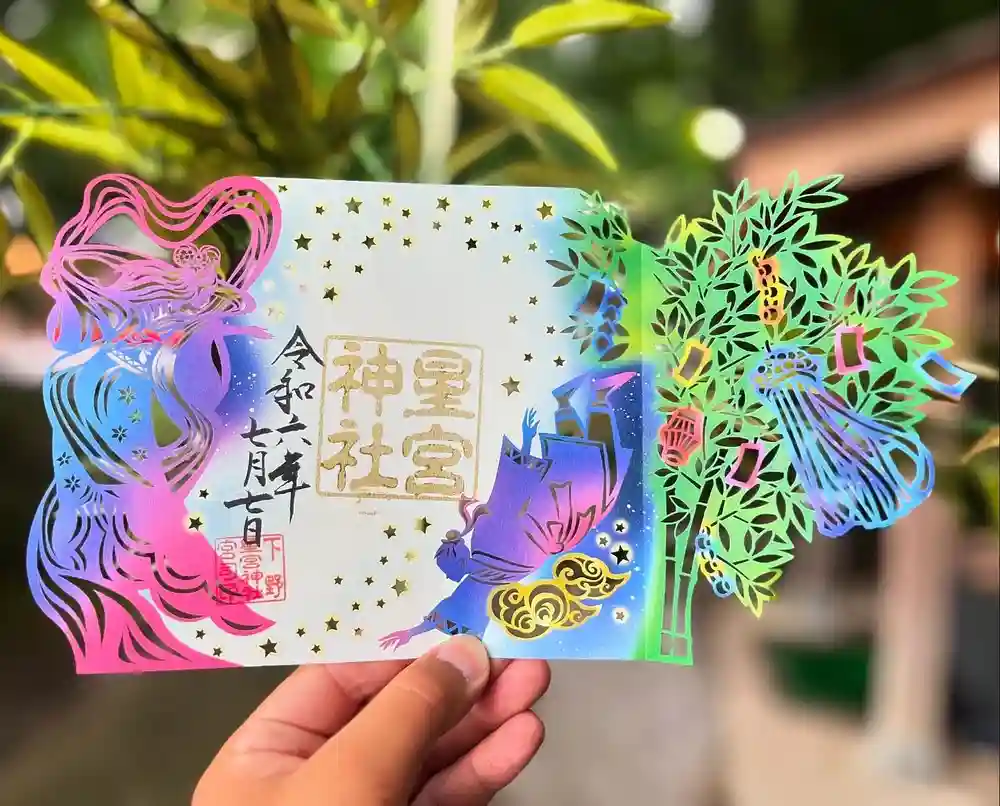 星宮
神社
令和六年
七月七日
下野
星宮神社